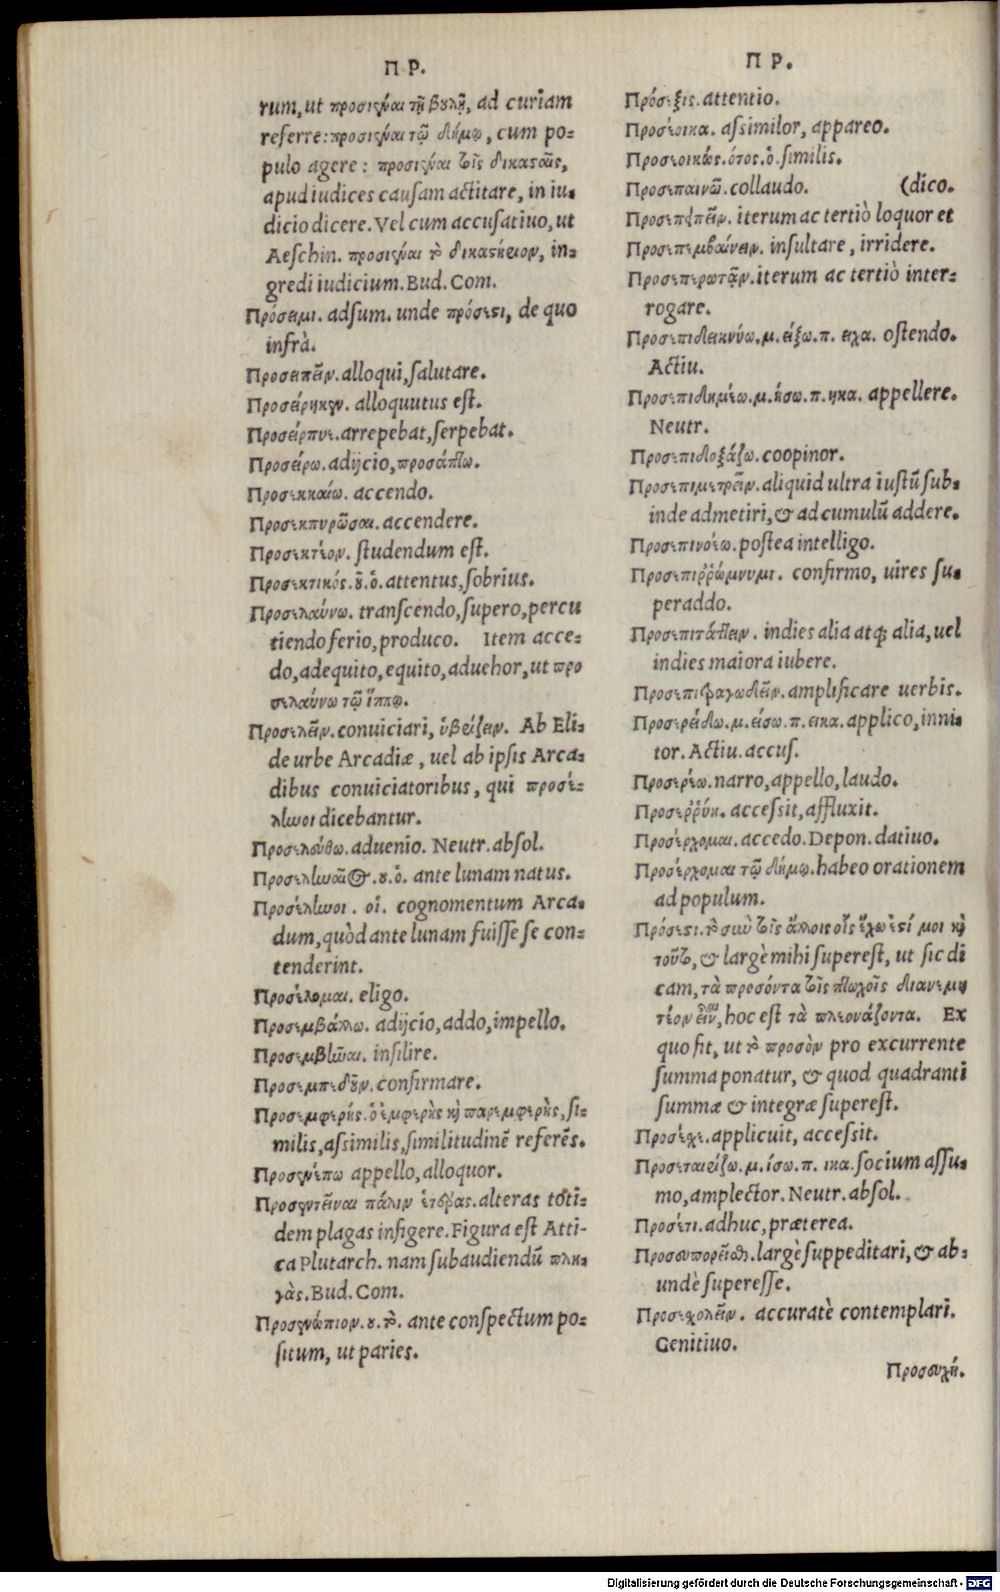 Π Ρ.
rum, ut προσιέναι τῇ βουλῇ, ad curiam
referre: προσιέναι τῷ δήμῳ, cum po-
pulo agere: προσιέναι τοῖς δικαςαῖς,
apud iudices causam actitare, in iu-
dicio dicere. Vel cum accusatiuo, ut
Aeschin. προσιέναι τὸ δικαςήειον, in-
gredi iudicium. Bud. Com.
Πρόσειμι. adsum. unde πρόσεςι, de quo
infrà.
Προσειπεῖν. alloqui, salutare.
Προσείρηκεν. alloquutus est.
Προσεῖρπυε. arrepebat, serpebat.
Προσείρω. adijcio, προσάπτω.
Προσεκκαίω. accendo.
Προσεκπυρῶσαι. accendere.
Προσεκτέον. studendum est.
Προσεκτικός. οῦ. ὁ. attentus, sobrius.
Προσελαύνω. transcendo, supero, percu
tiendo ferio, produco. Item acce-
do, adequito, equito, aduehor, ut προ
σελαύνω τῷ ἵππῳ.
Προσελεῖν. conuiciari, ὑβείζειν. Ab Eli-
de urbe Arcadiæ, uel ab ipsis Arca-
dibus conuiciatoribus, qui προσέ-
ληνοι dicebantur.
Προσελεύθω. aduenio. Neutr. absol.
Προσεληναῖος. ου. ὁ. ante lunam natus.
Προσέληνοι. οἱ. cognomentum Arca-
dum, quòd ante lunam fuisse se con-
tenderint.
Προσέλομαι. eligo.
Προσεμβάλλω. adijcio, addo, impello.
Προσεμβῆναι. insilire.
Προσεμπεδοῦν. confirmare.
Προσεμφερής. ὁ ἐμφερὴς καὶ παρεμφερὴς, si-
milis, assimilis, similitudinē referēs.
Προσενέπω appello, alloquor.
Προσεντεῖναι πάλιν ἑτέρας. alteras toti-
dem plagas infigere. Figura est Atti-
ca Plutarch. nam subaudiendū πλη-
γὰς. Bud. Com.
Προσενώπιον. ου. τὸ. ante conspectum po-
situm, ut paries.
Π Ρ.
Πρόσεξις. attentio.
Προσέοικα. assimilor, appareo.
Προσεοικώς. ότος. ὁ. similis.
Προσεπαινῶ. collaudo. (dico.
Προσεπειπεῖν. iterum ac tertiò loquor et
Προσεπεμβαίνειν. insultare, irridere.
Προσεπερωτᾷν. iterum ac tertiò inter-
rogare.
Προσεπιδεικνύω. μ. είξω. π. ειχα. ostendo.
Actiu.
Προσεπιδημέω. μ. ήσω. π. ηκα. appellere.
Neutr.
Προσεπιδοξάζω. coopinor.
Προσεπιμετρεῖν. aliquid ultra iustū sub-
inde admetiri, & ad cumulū addere.
Προσεπινοέω. postea intelligo.
Προσεπιῤῥώμνυμι. confirmo, uires su-
peraddo.
Προσεπιτάττειν. indies alia atq; alia, uel
indies maiora iubere.
Προσεπιτραγωδεῖν. amplificare uerbis.
Προσερείδω. μ. είσω. π. εικα. applico, inni-
tor. Actiu. accus.
Προσερέω. narro, appello, laudo.
Προσερῤῥύη. accessit, affluxit.
Προσέρχομαι. accedo. Depon. datiuo.
Προσέρχομαι τῷ δήμῳ. habeo orationem
ad populum.
Πρόσεςι. τὸ σὺν τοῖς ἄλλοις οἷς ἔχω ἐςί μοι καὶ
τοῦτο, & largè mihi superest, ut sic di
cam, τὰ προσόντα τοῖς πτωχοῖς διανεμη
τέον εἶναι, hoc est τὰ πλεονάζοντα. Ex
quo fit, ut τὸ προσὸν pro excurrente
summa ponatur, & quod quadranti
summæ & integræ superest.
Προσέχε. applicuit, accessit.
Προσεταιείζω. μ. ίσω. π. ικα. socium assu-
mo, amplector. Neutr. absol.
Προσέτι. adhuc, præterea.
Προσευπορεῖσθαι. largè suppeditari, & ab-
undè superesse.
Προσεχολεῖν. accuratè contemplari.
Genitiuo.
Προσευχή.
Digitalisierung gefördert durch die Deutsche Forschungsgemeinschaft - DFG